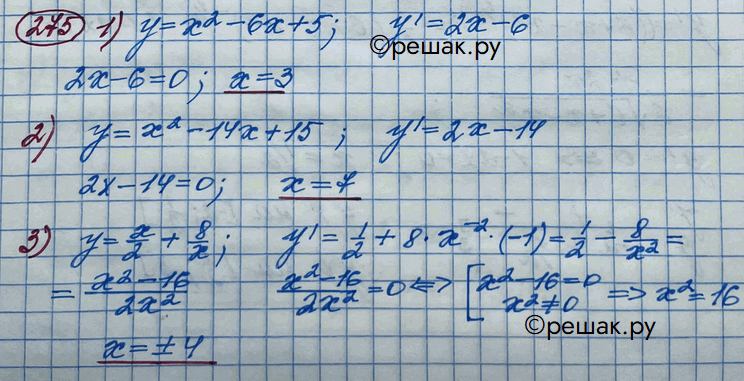 275 1) y=x²-6x+5; y'=2x-6
©решак.ру
2x-6=0; x=3
2) y=x²-14x+15; y'=2x-14
2x-14=0; x=7
3) y=x/2+8/x; y'=1/2+8·x⁻²·(-1)=1/2-8/x²=
=(x²-16)/(2x²) (x²-16)/(2x²)=0⇔[x²-16=0 x²≠0 ⇒x²=16
©решак.ру
x=±4